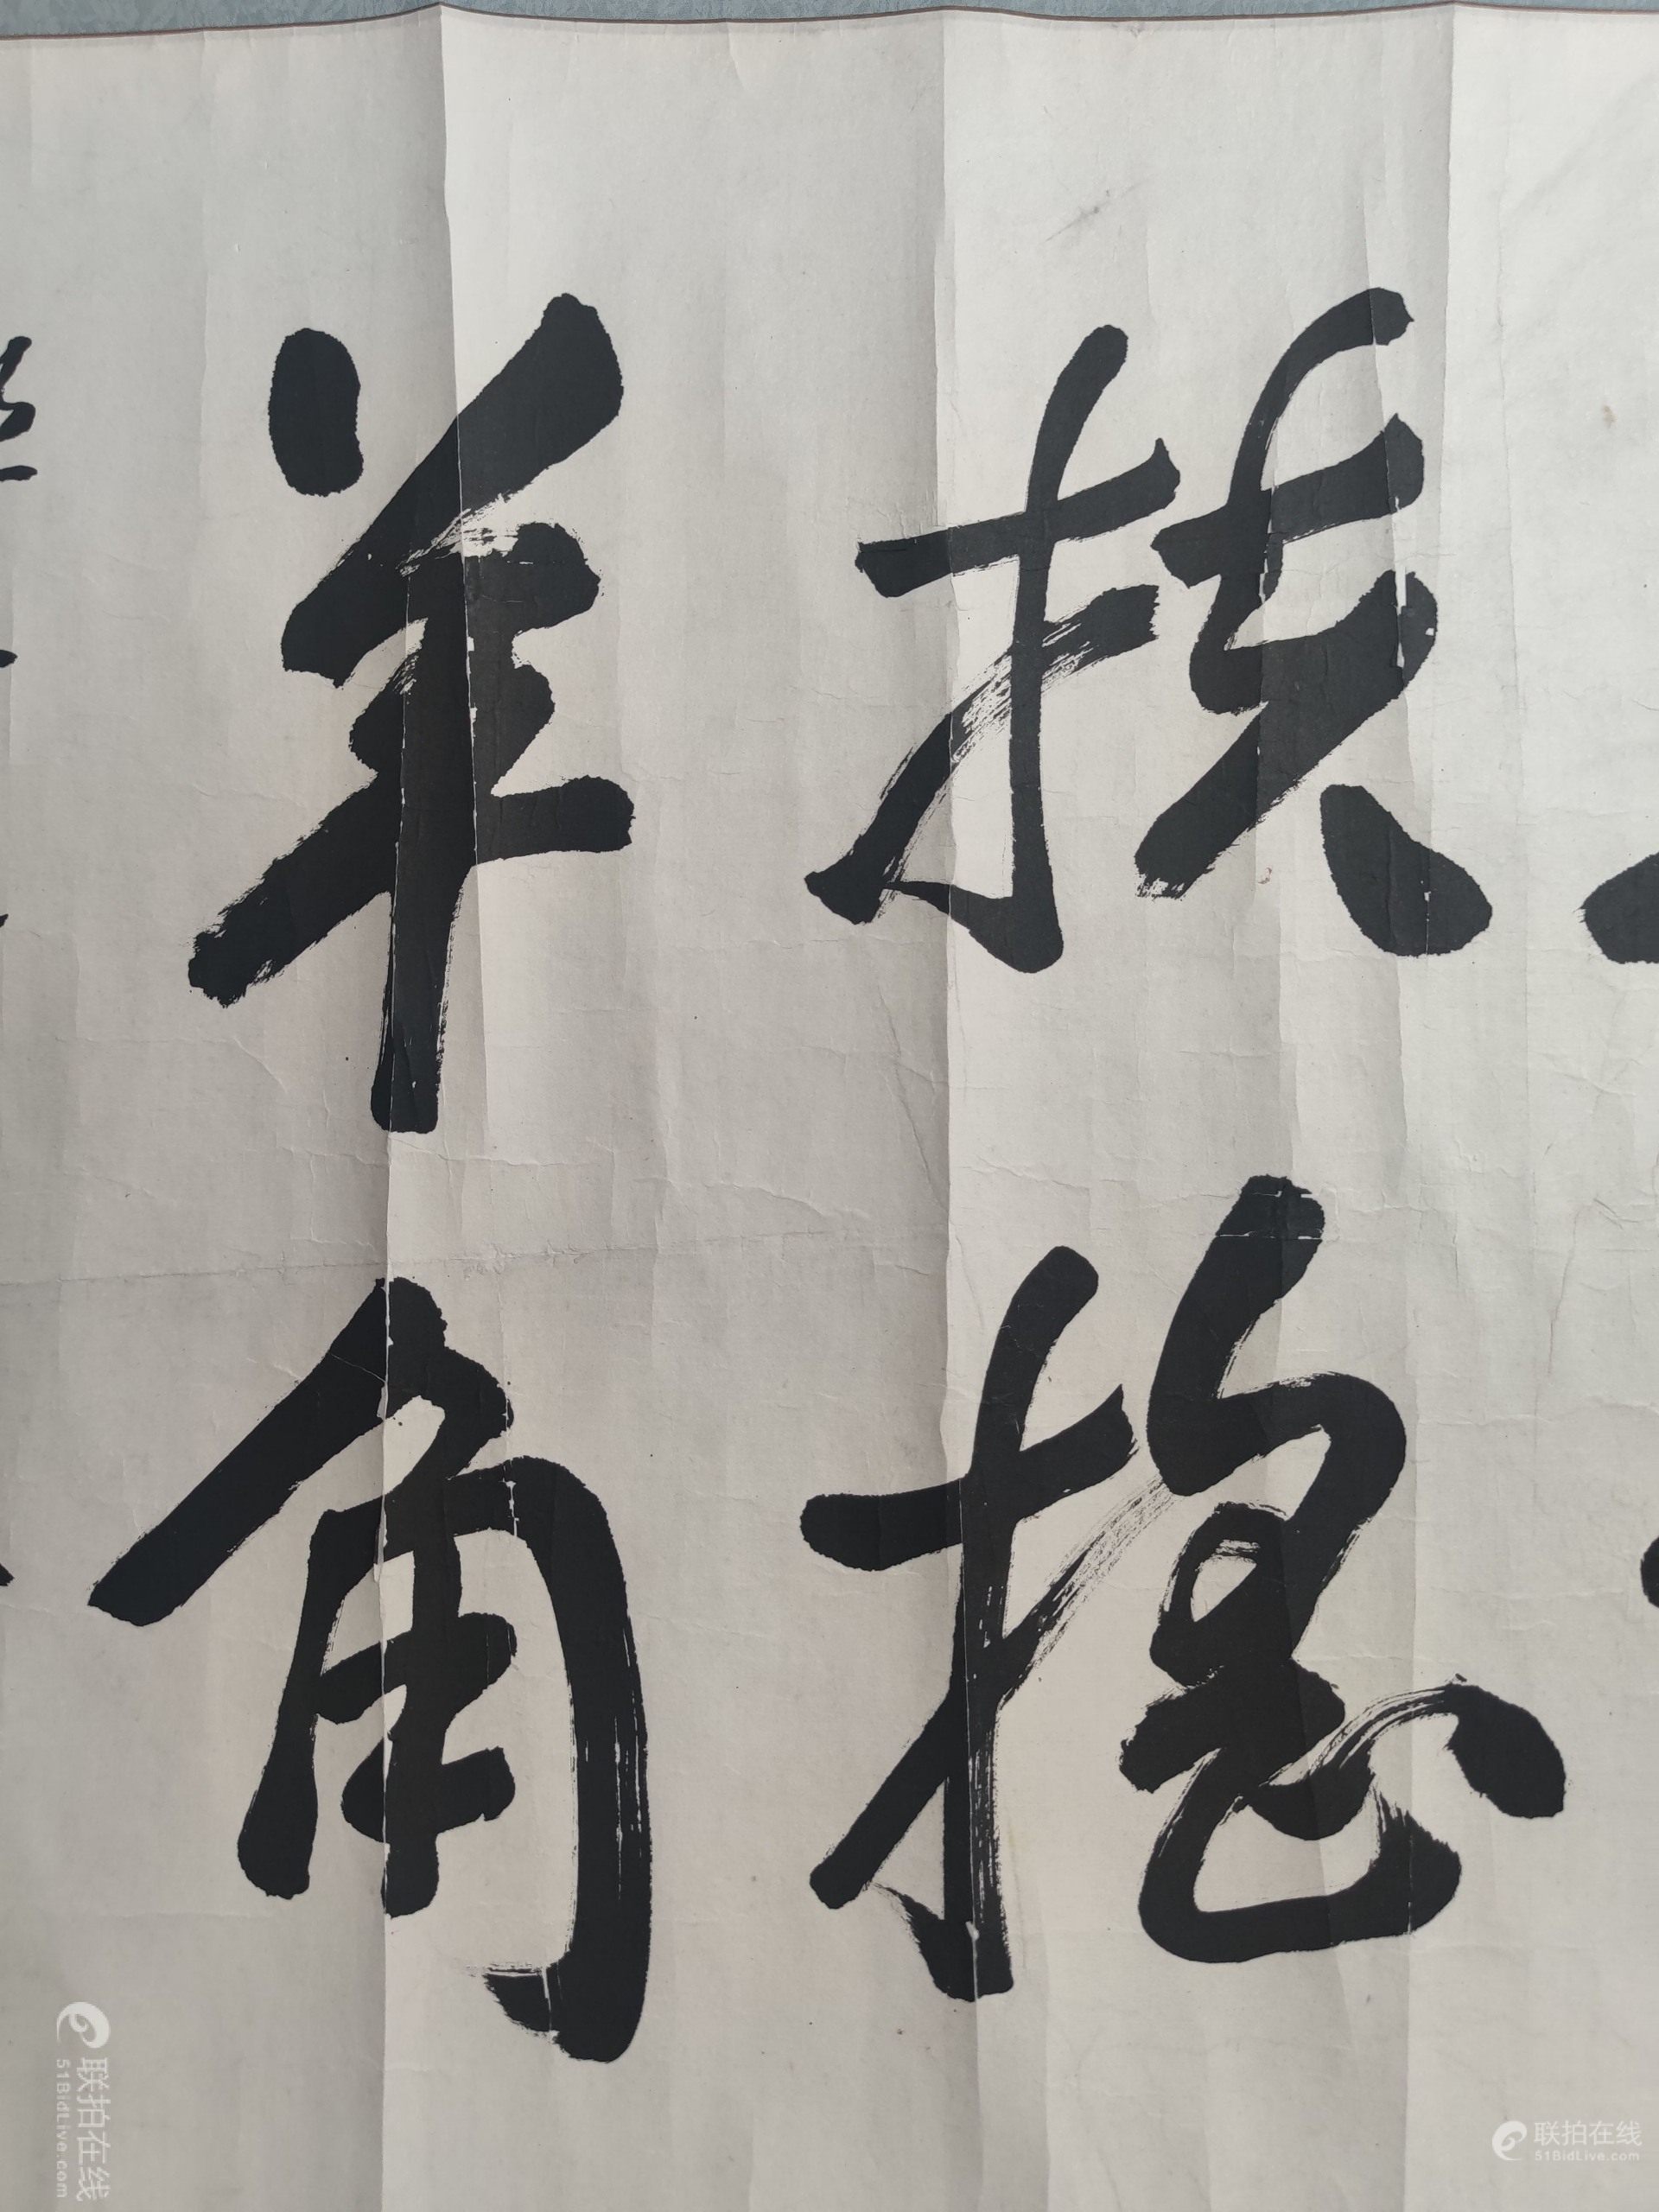 扶摇
羊角
联拍在线
51BidLive.com
联拍在线
51BidLive.com